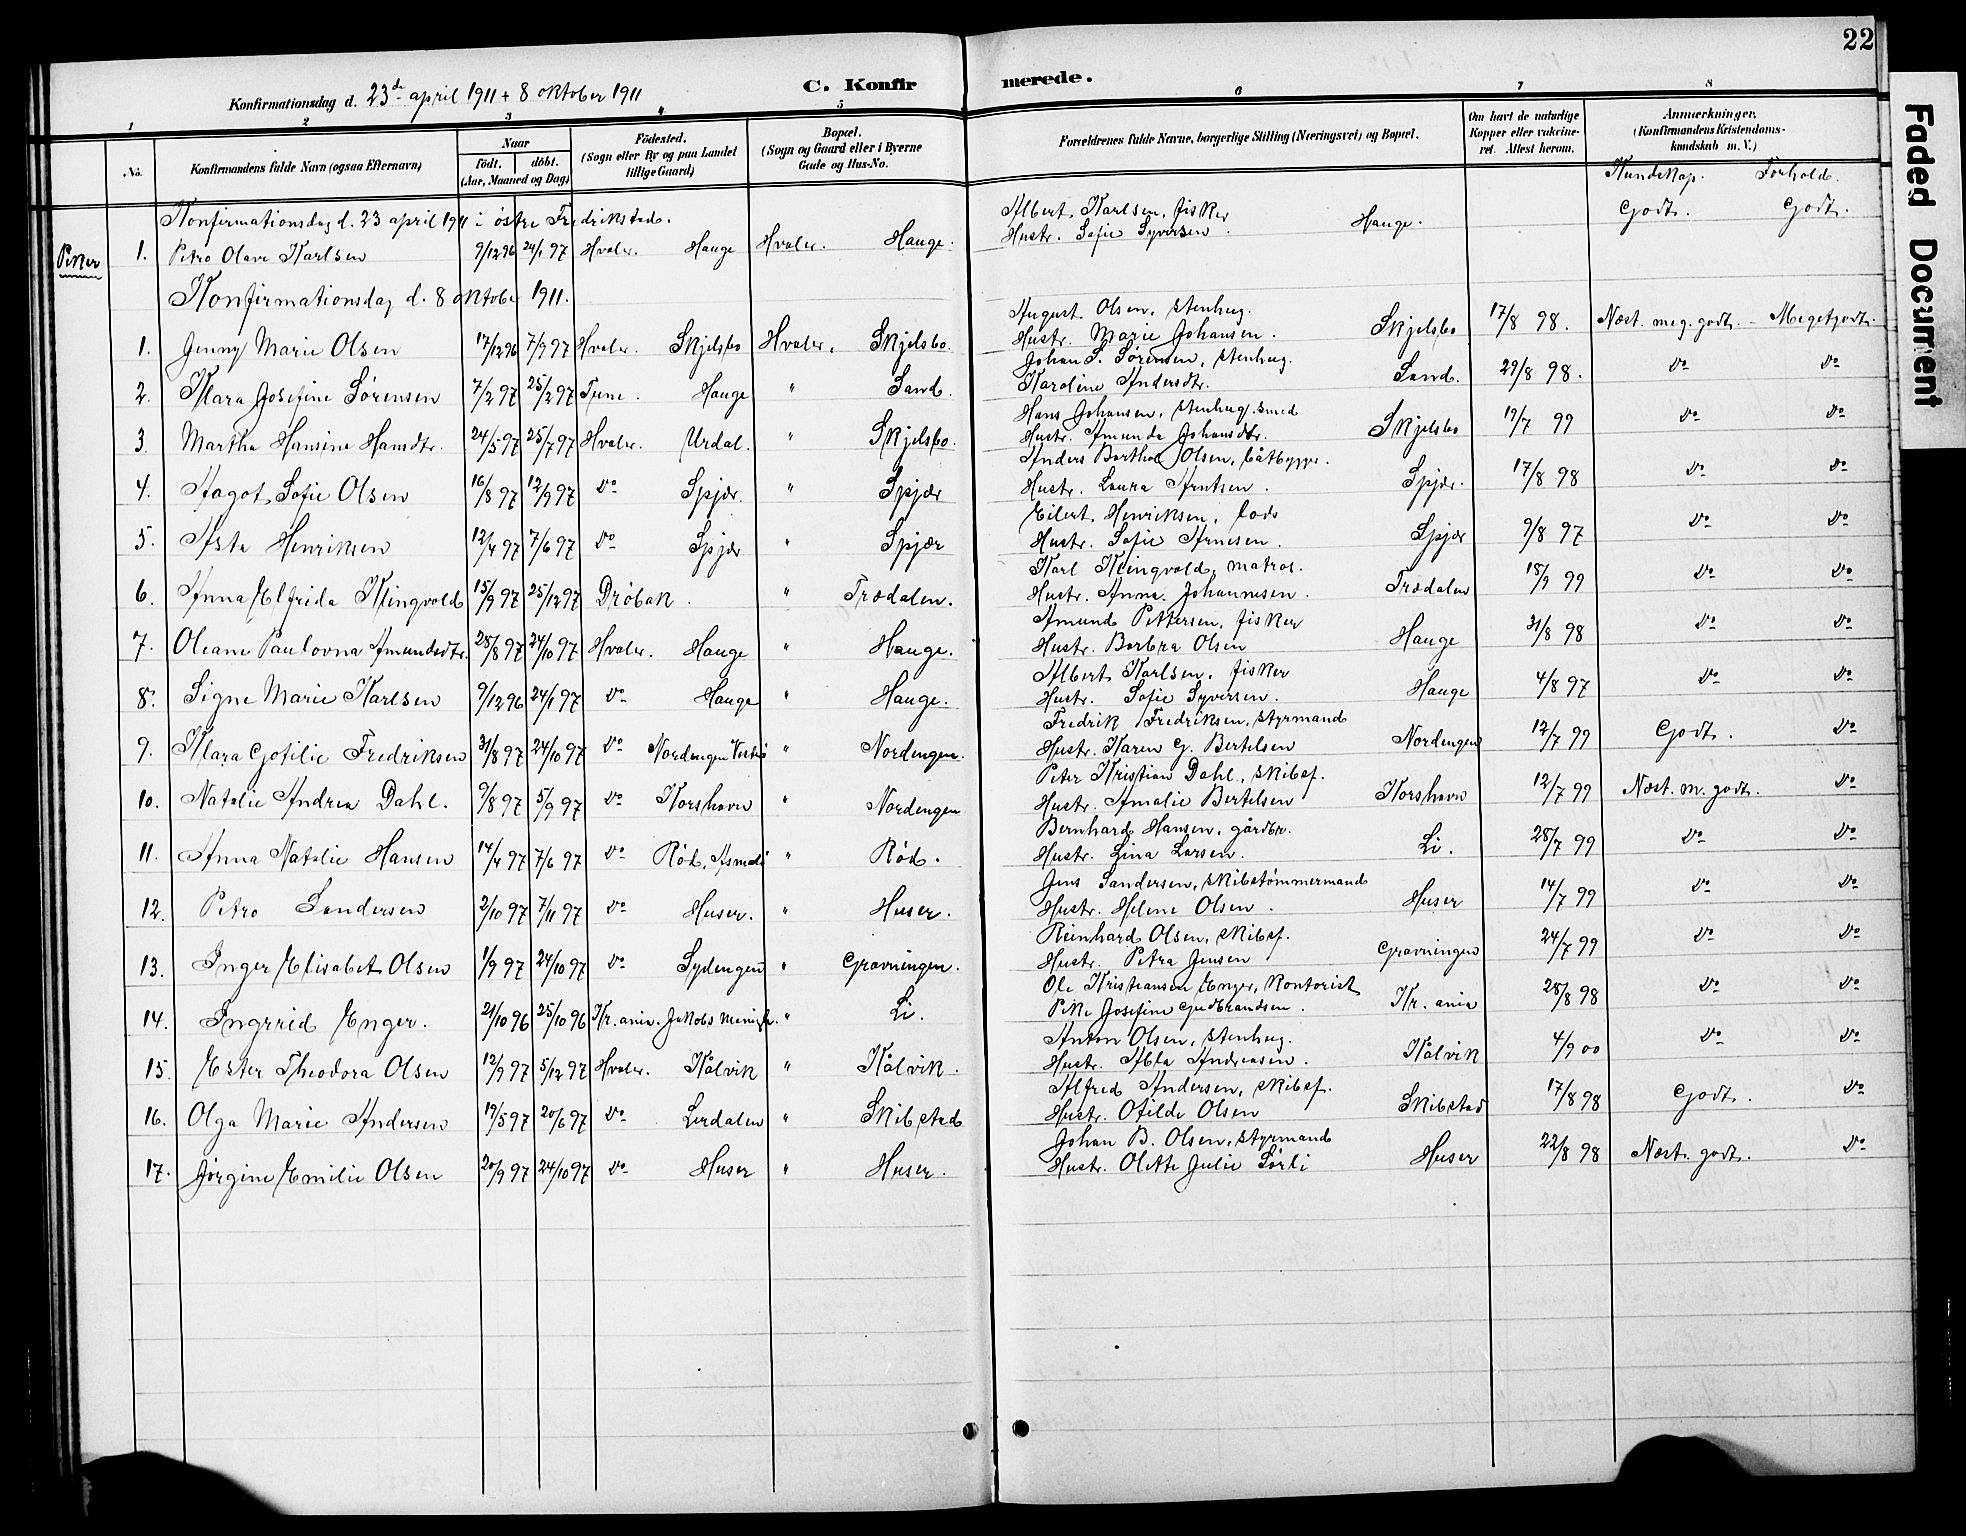 22
Konfirmationsdag d. 23de april 1911 + 8 oktober 1911
C. Konfirmerede.
1 2 3 4 5 6 7 8
No. Konfirmandens fulde Navn (ogsaa Efternavn) Naar født. døbt. (Aar, Maaned og Dag) Fødested. (Sogn eller By og paa Landet tillige Gaard) Bopæl. (Sogn og Gaard eller i Byerne Gade og Hus-No. Forældrenes fulde Navne, borgerlige Stilling (Næringsvei) og Bopæl. Om havt de naturlige Kopper eller vakcineret. Attest herom. Anmærkninger. (Konfirmandens Kristendomskundskab m. V.)
Kundskap. Forhold.
Konfirmationsdag d. 23 april 1911 i østre Fredrikstad.
Piker 1. Petro Olave Karlsen 9/12 96 24/1 97 Hvaler. Hauge Hvaler. Hauge. Albert Karlsen, fisker Hauge. Godt. Godt.
Hustr. Sofie Syversen.
Konfirmationsdag d. 8 oktober 1911.
August Olsen, stenhug.
1. Jenny Marie Olsen 17/12 96 7/9 97 Hvaler. Skjelsbo Hvaler. Skjelsbo. Hustr. Marie Johansen. Skjelsbo 17/8 98. Næst. meg. godt. - Meget godt.
Johan S. Sørensen, stenhug.
2. Klara Josefine Sørensen 7/2 97 25/2 97 Tune. Hauge " Sand. Karoline Andersdtr. Sand. 29/8 98. do do
Hans Johansen, stenhug. smed
3. Martha Hansine Hansdtr. 24/5 97 25/7 97 Hvaler. Urdal. " Skjelsbo. Hustr. Amunda Johansdtr. Skjelsbo 19/7 99 do do
Anders Barthol Olsen, båtbygger.
4. Aagot Sofie Olsen 16/8 97 12/9 97 do Spjær. " Spjær Hustr. Laura Arntsen. Spjær. 17/8 98 do do
Eilert Henriksen, lods
5. Asta Henriksen 12/4 97 7/6 97 do Spjær " Spjær Hustr. Sofie Arnesen. Spjær 9/8 97 do do
Karl Klingvold, matros.
6. Anna Elfrida Klingvold 15/9 97 25/12 97 Drøbak. " Trædalen. Hustr. Anna Johannesen. Trædalen 18/9 99 do do
Amund Pettersen, fisker
7. Oleane Paulovna Amundsdtr. 28/8 97 24/10 97 Hvaler. Hauge " Hauge. Hustr. Barbra Olsen Hauge 31/8 98 do do
Albert Karlsen. fisker
8. Signe Marie Karlsen 9/12 96 24/1 97 do Hauge " Hauge. Hustr. Sofie Syversen. Hauge 4/8 97 do do
Fredrik Fredriksen, styrmand
9. Klara Gotilie Fredriksen 31/8 97 24/10 97 do Nordengen " Nordengen. Hustr. Karen G. Bertelsen Nordengen 12/7 99 Godt. do
Peter Kristian Dahl, skibsf.
10. Natalie Andrea Dahl. 9/8 97 5/9 97 do Korshavn " Nordengen Hustr. Amalie Bertelsen Korshavn 12/7 99 Næst. m. godt. do
Bernhard Hansen, gårdbr.
11. Anna Natalie Hansen 14/4 97 7/6 97 do Rød, Asmalø " Rød. Hustr. Lina Larsen. Li. 28/7 99 do do
Jens Sandersen, skibstømmermand
12. Petro Sandersen 2/10 97 7/11 97 do Huser. " Huser. Hustr. Helene Olsen. Huser 14/7 99 do do
Reinhard Olsen, skibsf.
13. Inger Elisabet Olsen 1/9 97 24/10 97 do Sydengen " Gravningen. Hustr. Petra Jensen Gravningen 24/7 99 do do
Ole Kristiansen Enger, kontorist
14. Ingrid Enger. 21/10 96 25/10 96 Kr.ania. Jakobs menigh. " Li. Pike Josefine Gudbrandsen. Kr.ania 28/8 98 do do
Anton Olsen, stenhug.
15. Ester Theodora Olsen 12/9 97 5/12 97 Hvaler. Kålvik " Kålvik. Hustr. Alta Andreasen. Kålvik 4/9 00 do do
Alfred Andersen, skibsf.
16. Olga Marie Andersen 19/5 97 20/6 97 do Lerdalen " Skibstad Hustr. Otilde Olsen Skibstad 17/8 98 Godt. do
Johan B. Olsen, styrmand
17. Jørgine Emilie Olsen 20/9 97 24/10 97 do Huser " Huser. Hustr. Olette Julie Sørli Huser 22/8 98 Næst. godt. do
Faded Document